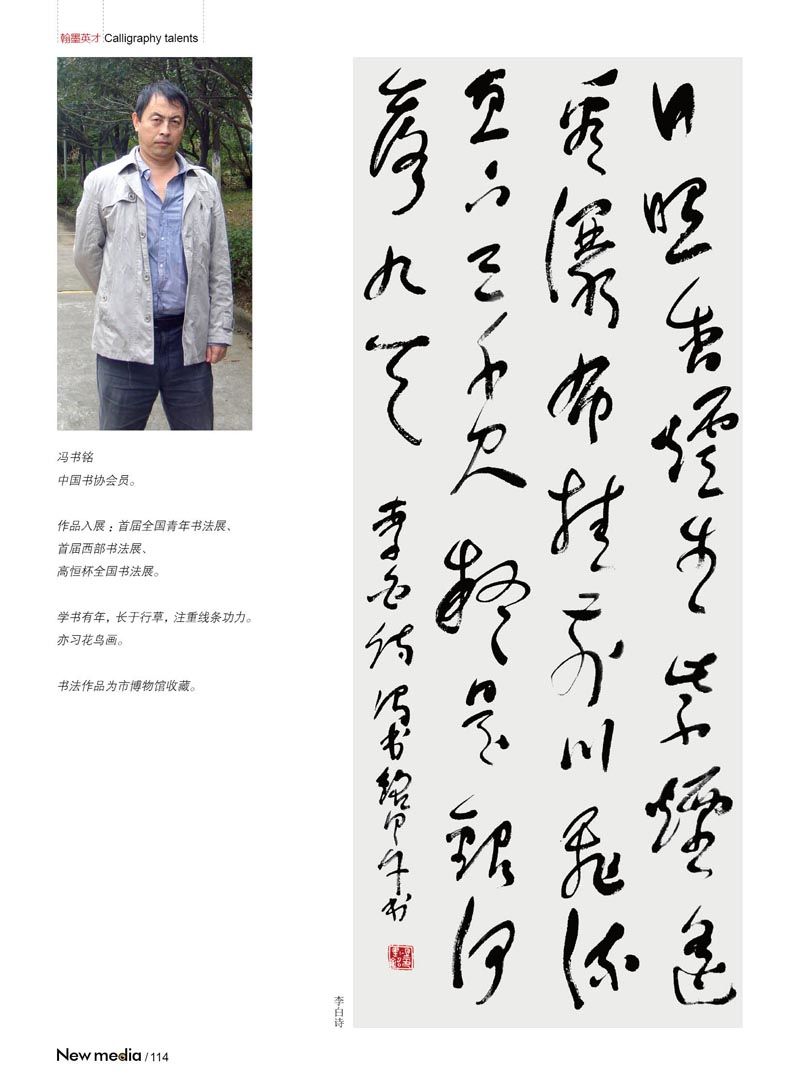 翰墨英才 Calligraphy talents
冯书铭
中国书协会员。
作品入展：首届全国青年书法展、
首届西部书法展、
高恒杯全国书法展。
学书有年，长于行草，注重线条功力。
亦习花鸟画。
书法作品为市博物馆收藏。
日照香爐生紫煙遥
看瀑布挂前川飛流
直下三千尺疑是銀河
落九天 李白诗 冯书铭甲午书
李白诗
New media / 114